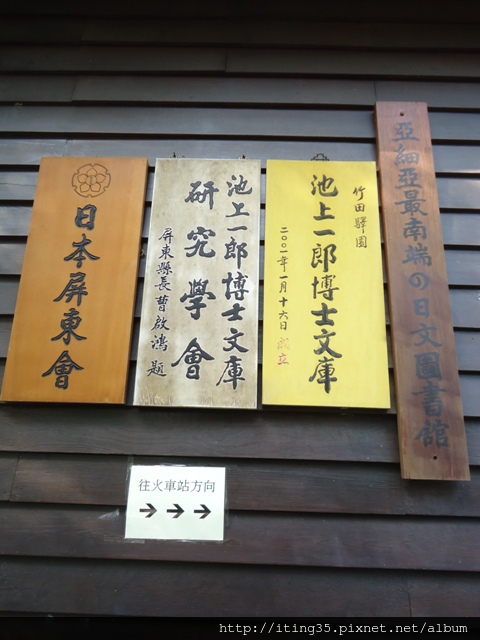 亞細亞最南端の日文圖書館
竹田驛園
池上一郎博士文庫
二〇〇一年一月十六日成立
池上一郎博士文庫
研究學會
屏東縣長曹啟鴻題
日本屏東會
往火車站方向
→→→
http://iting35.pixnet.net/album